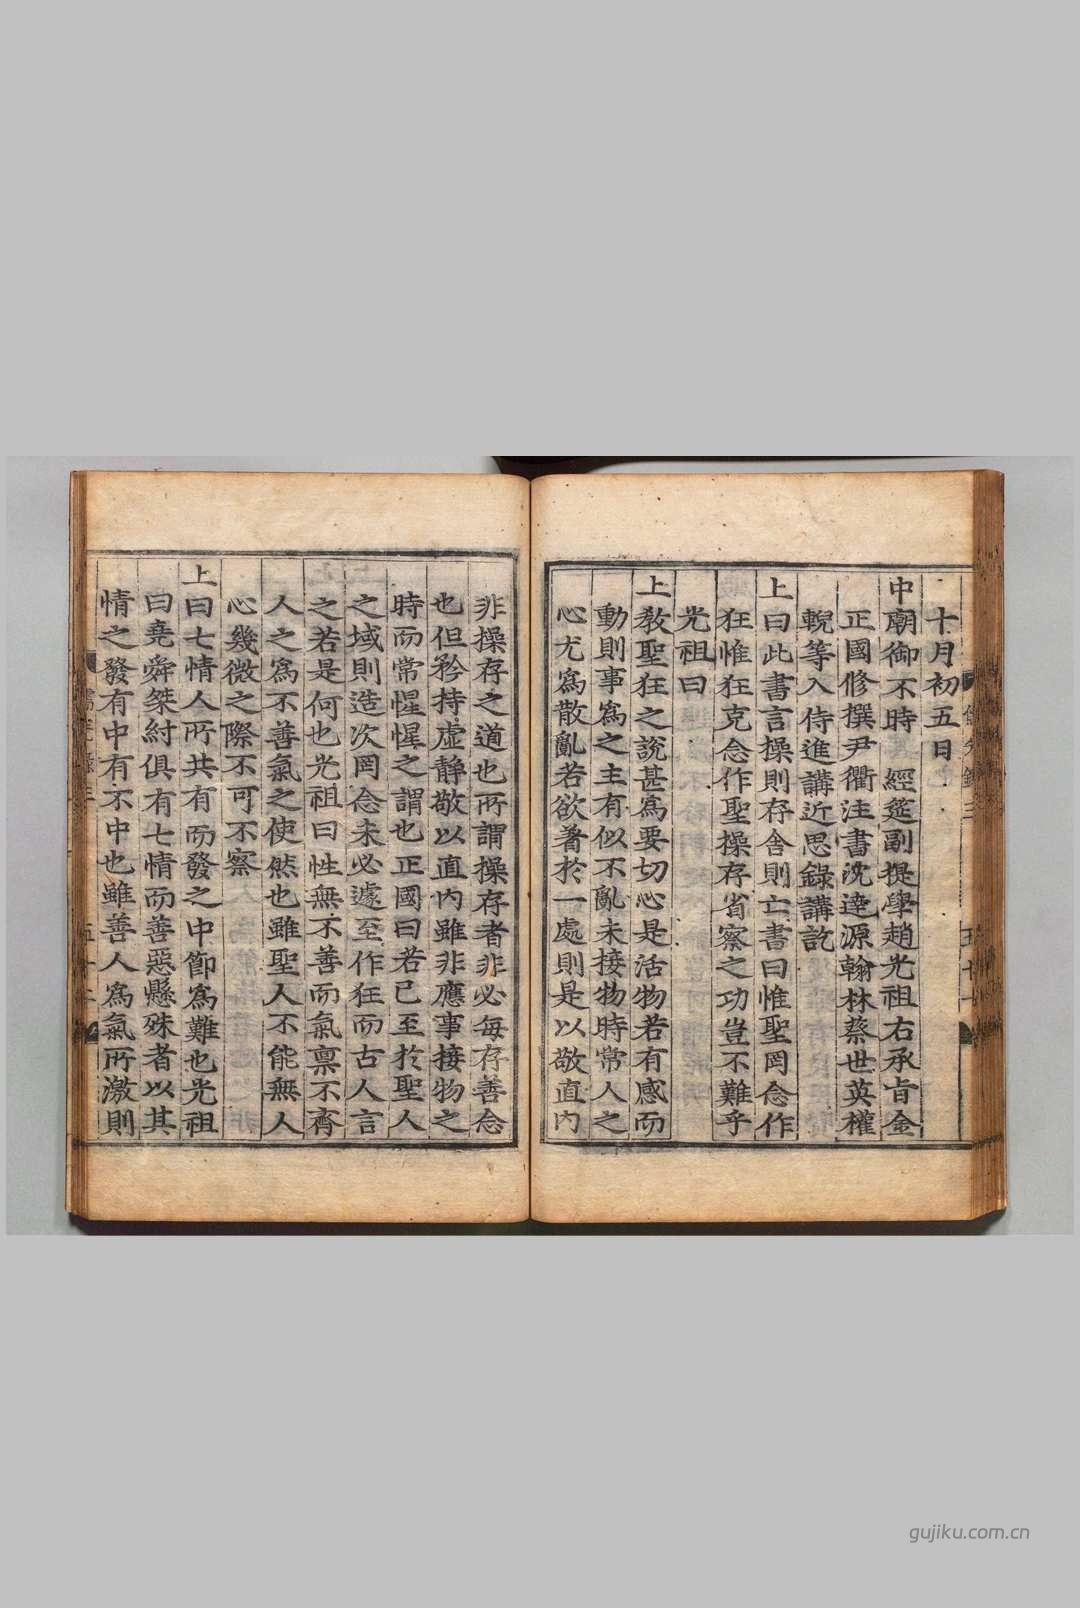 十月初五日
中廟御不時 經筵副提學趙光祖右承旨金
正國修撰尹衢注書沈達源翰林蔡世英權
輗等入侍進講近思錄講訖
上曰此書言操則存舍則亡書曰惟聖罔念作
狂惟狂克念作聖操存省察之功豈不難乎
光祖曰
上教聖狂之說甚爲要切心是活物若有感而
動則事爲之主有似不亂未接物時常人之
心尤爲散亂若欲著於一處則是以敬直內
非操存之道也所謂操存者非必每存善念
也但矜持虛靜敬以直內雖非應事接物之
時而常惺惺之謂也正國曰若已至於聖人
之域則造次罔念未必遽至作狂而古人言
之若是何也光祖曰性無不善而氣禀不齊
人之爲不善氣之使然也雖聖人不能無人
心幾微之際不可不察
上曰七情人所共有而發之中節爲難也光祖
曰堯舜桀紂俱有七情而善惡懸殊者以其
情之發有中有不中也雖善人爲氣所激則
gujiku.com.cn